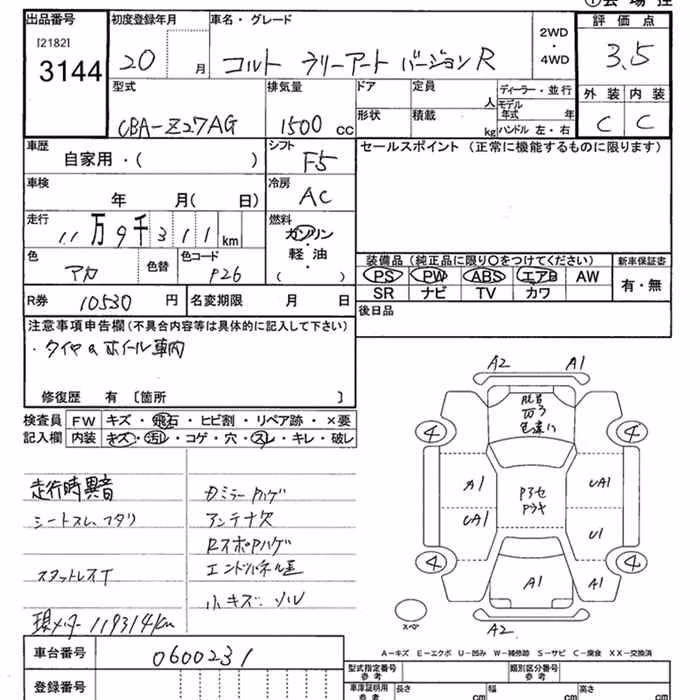 出品番号 初度登録年月 車名・グレード 評価点
[2182]
3144
20 月 コルト ラリーアート バージョンR 2WD・4WD 3.5
型式 排気量 ドア 定員 人 ディーラー・並行 外装 内装
CBA-Z27AG 1500 cc 形状 積載 kg モデル年式 年 C C
ハンドル 左・右
車歴 自家用・( ) シフト F5 セールスポイント (正常に機能するものに限ります)
車検 年 月( 日) 冷房 AC
走行 11万9千311km 燃料 ガソリン・軽油・( )
色 アカ 色替 色コード P26
装備品 (純正品に限り○をつけてください) 新車保証書
PS PW ABS エアB AW 有・無
SR ナビ TV カワ
R券 10530 円 名変期限 月 日 後日品
注意事項申告欄(不具合内容等は具体的に記入して下さい)
・タイヤ&ホイール車内
修復歴 有 [箇所 ]
検査員 FW キズ・飛石・ヒビ割・リペア跡・×要
記入欄 内装 キズ・汚レ・コゲ・穴・スレ・キレ・破レ
走行時異音
シートスレ
スタットレスT
現メーター119314km
カミラーハゲ
アンテナ欠
RスポPハゲ
エンドパネル歪
小キズ・ソル
A2 A1
脱着
色違い
4 4
A1 UA1
UA1 U1
4 4
A1 A1
スペア
A2
A-キズ E-エクボ U-凹み W-補修跡 S-サビ C-腐食 XX-交換済
車台番号 0600231 型式指定番号 類別区分番号
登録番号 車庫証明用参考 長さ cm 幅 cm 高さ cm